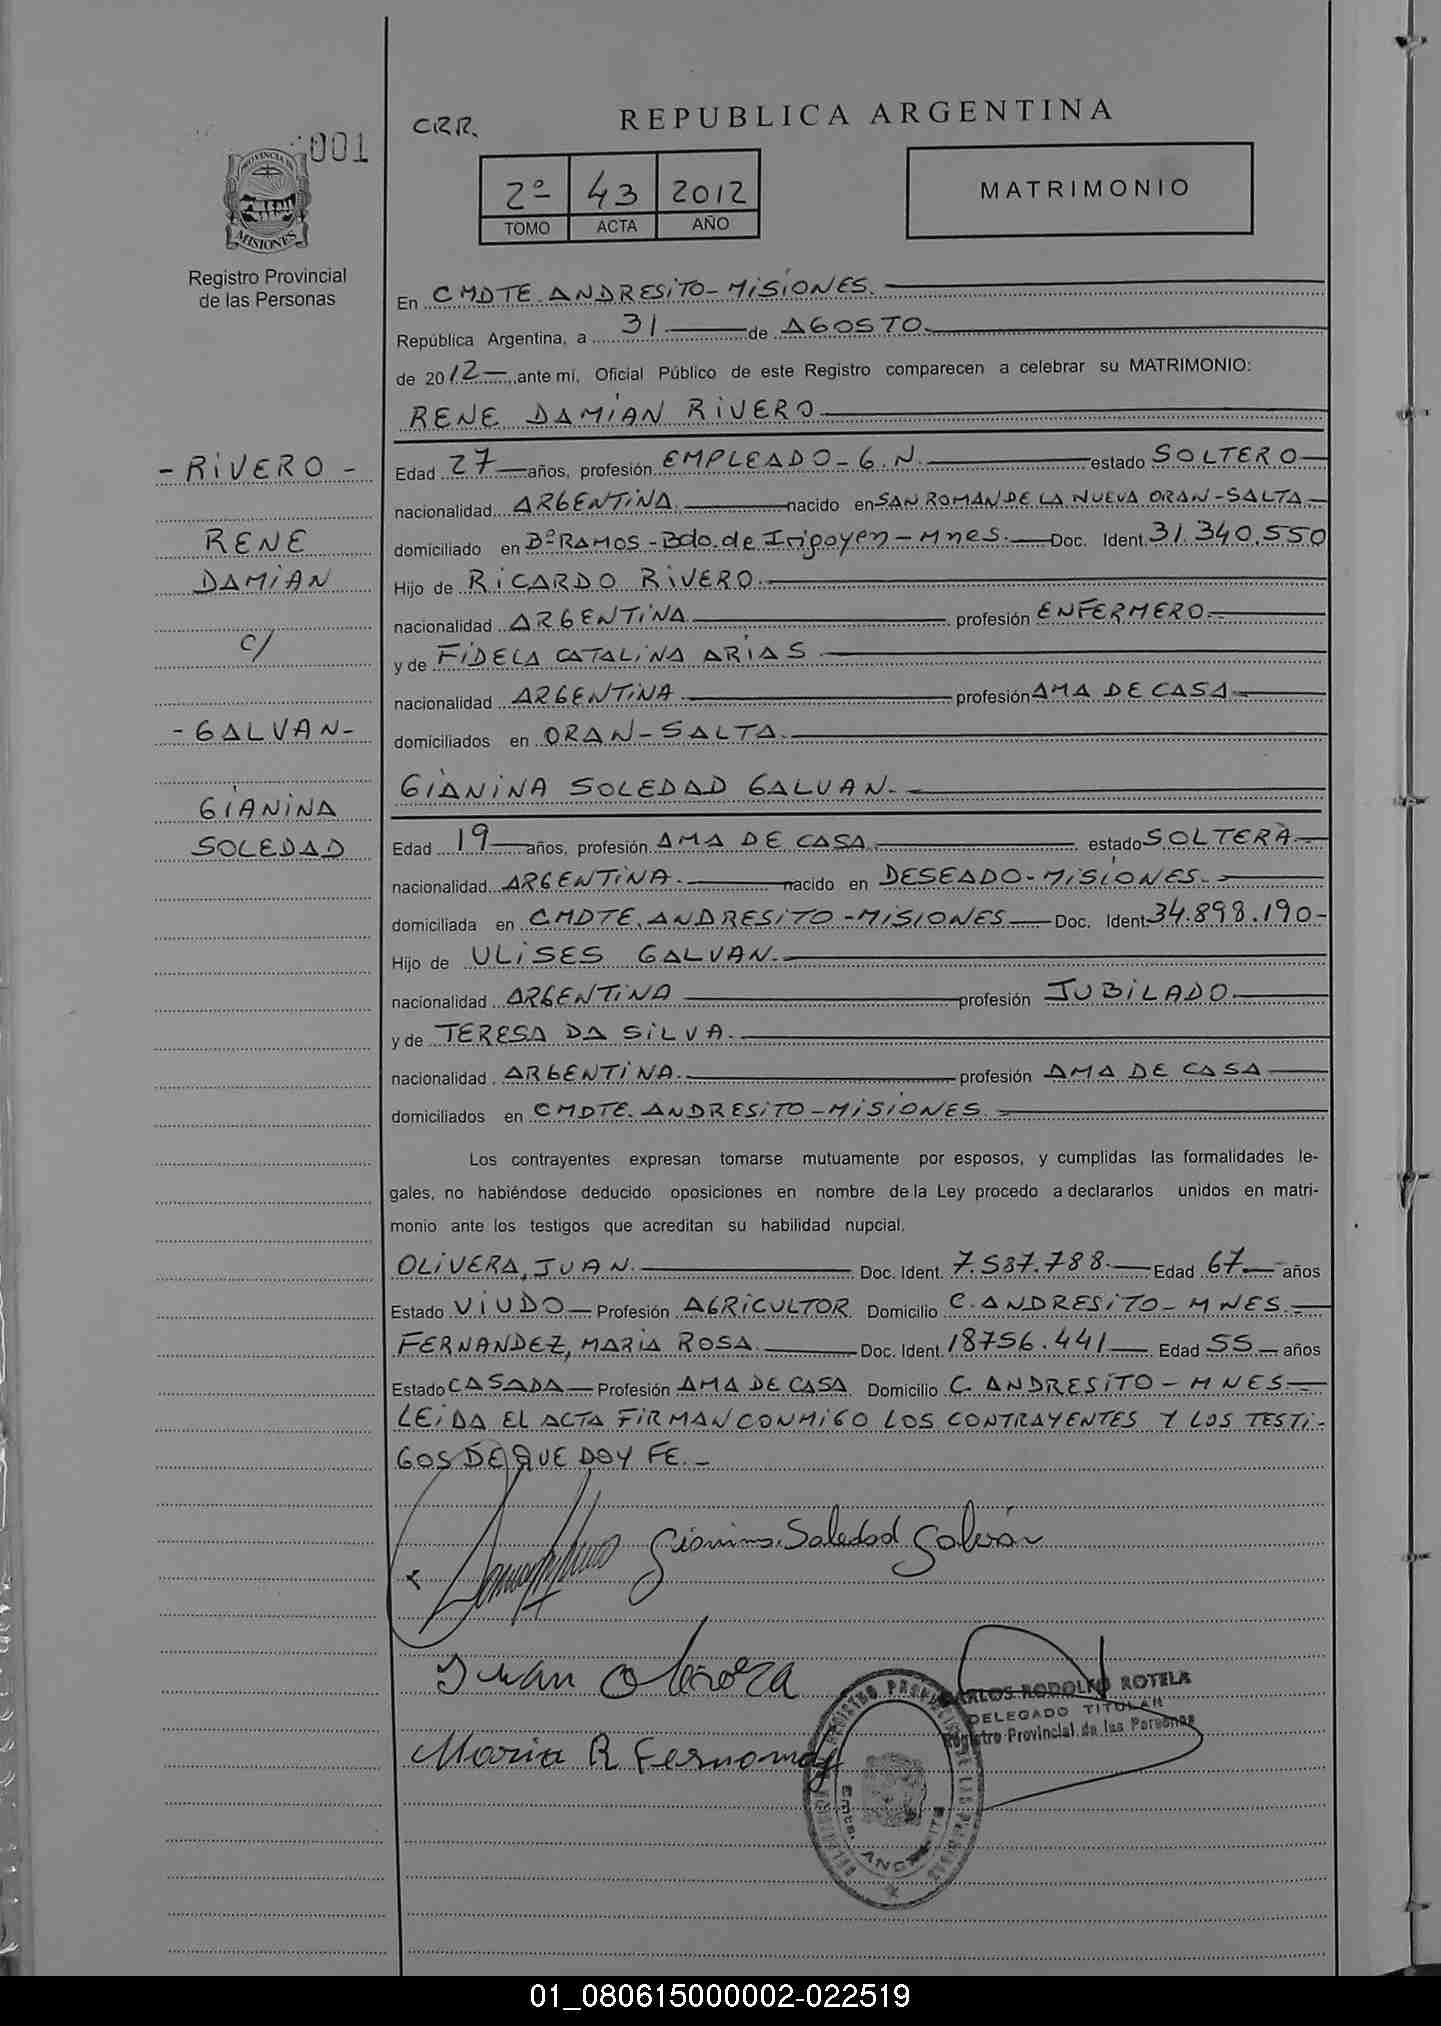 001
PROVINCIA DE
MISIONES
Registro Provincial
de las Personas
CRR.
REPUBLICA ARGENTINA
2º 43 2012
TOMO ACTA AÑO
MATRIMONIO
En CMDTE. ANDRESITO - MISIONES.
República Argentina, a 31 de AGOSTO
de 2012 ,ante mí, Oficial Público de este Registro comparecen a celebrar su MATRIMONIO:
RENE DAMIAN RIVERO
- RIVERO -
RENE
DAMIAN
c/
- GALVAN -
GIANINA
SOLEDAD
Edad 27 años, profesión EMPLEADO - G.N. estado SOLTERO
nacionalidad ARGENTINA. nacido en SAN ROMAN DE LA NUEVA ORAN - SALTA
domiciliado en Bº RAMOS - Bdo. de Irigoyen - Mnes. Doc. Ident. 31.340.550
Hijo de RICARDO RIVERO.
nacionalidad ARGENTINA profesión ENFERMERO
y de FIDELA CATALINA ARIAS
nacionalidad ARGENTINA profesión AMA DE CASA
domiciliados en ORAN - SALTA.
GIANINA SOLEDAD GALVAN.
Edad 19 años, profesión AMA DE CASA estado SOLTERA
nacionalidad ARGENTINA. nacido en DESEADO - MISIONES.
domiciliada en CMDTE. ANDRESITO - MISIONES Doc. Ident. 34.898.190-
Hijo de ULISES GALVAN.
nacionalidad ARGENTINA profesión JUBILADO
y de TERESA DA SILVA.
nacionalidad ARGENTINA. profesión AMA DE CASA
domiciliados en CMDTE. ANDRESITO - MISIONES.
Los contrayentes expresan tomarse mutuamente por esposos, y cumplidas las formalidades le-
gales, no habiéndose deducido oposiciones en nombre de la Ley procedo a declararlos unidos en matri-
monio ante los testigos que acreditan su habilidad nupcial.
OLIVERA, JUAN. Doc. Ident. 7.587.788. Edad 67 años
Estado VIUDO Profesión AGRICULTOR Domicilio C. ANDRESITO - MNES.
FERNANDEZ, MARIA ROSA. Doc. Ident. 18756.441 Edad 55 años
Estado CASADA Profesión AMA DE CASA Domicilio C. ANDRESITO - MNES
LEIDA EL ACTA FIRMAN CONMIGO LOS CONTRAYENTES Y LOS TESTI-
GOS DE QUE DOY FE.-
Gianina Soledad Galván
Juan Olivera
CARLOS RODOLFO ROTELA
DELEGADO TITULAR
Registro Provincial de las Personas
Maria R Fernandez
REGISTRO PROVINCIAL DE LAS PERSONAS
Cmte. ANDRESITO
01_080615000002-022519